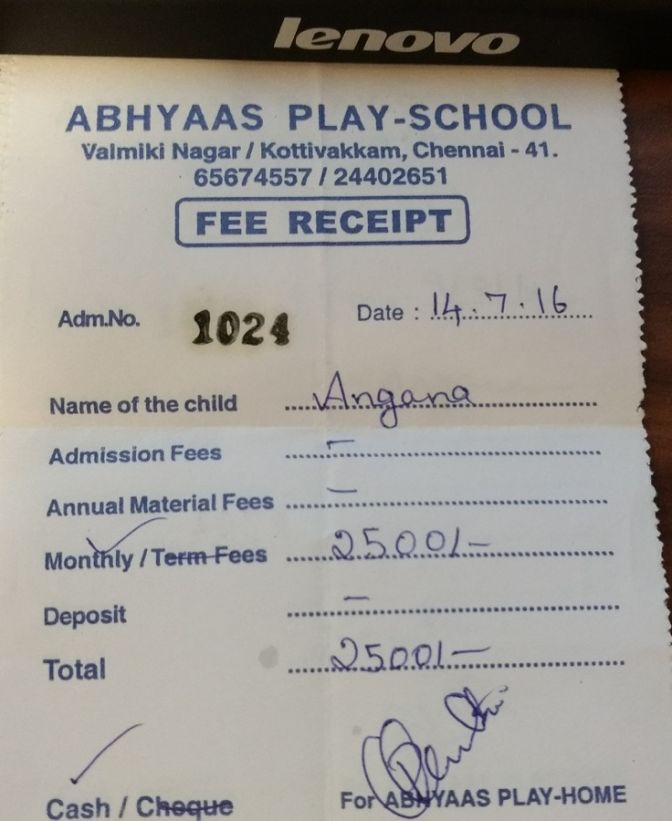 lenovo
ABHYAAS PLAY-SCHOOL
Valmiki Nagar / Kottivakkam, Chennai - 41.
65674557 / 24402651
FEE RECEIPT
Adm.No. 1024 Date : 14.7.16
Name of the child Angana
Admission Fees —
Annual Material Fees —
Monthly / Term Fees 2500/-
Deposit —
Total 2500/-
Cash / Cheque For ABHYAAS PLAY-HOME